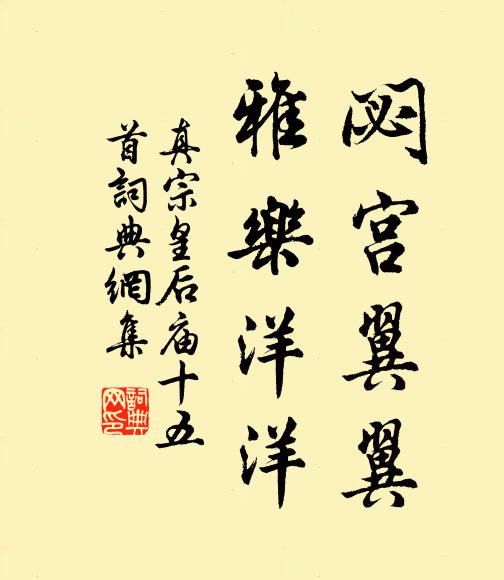 閟宫翼翼
雅樂洋洋
真宗皇后庙十五
首詞典網集
詞典
网印